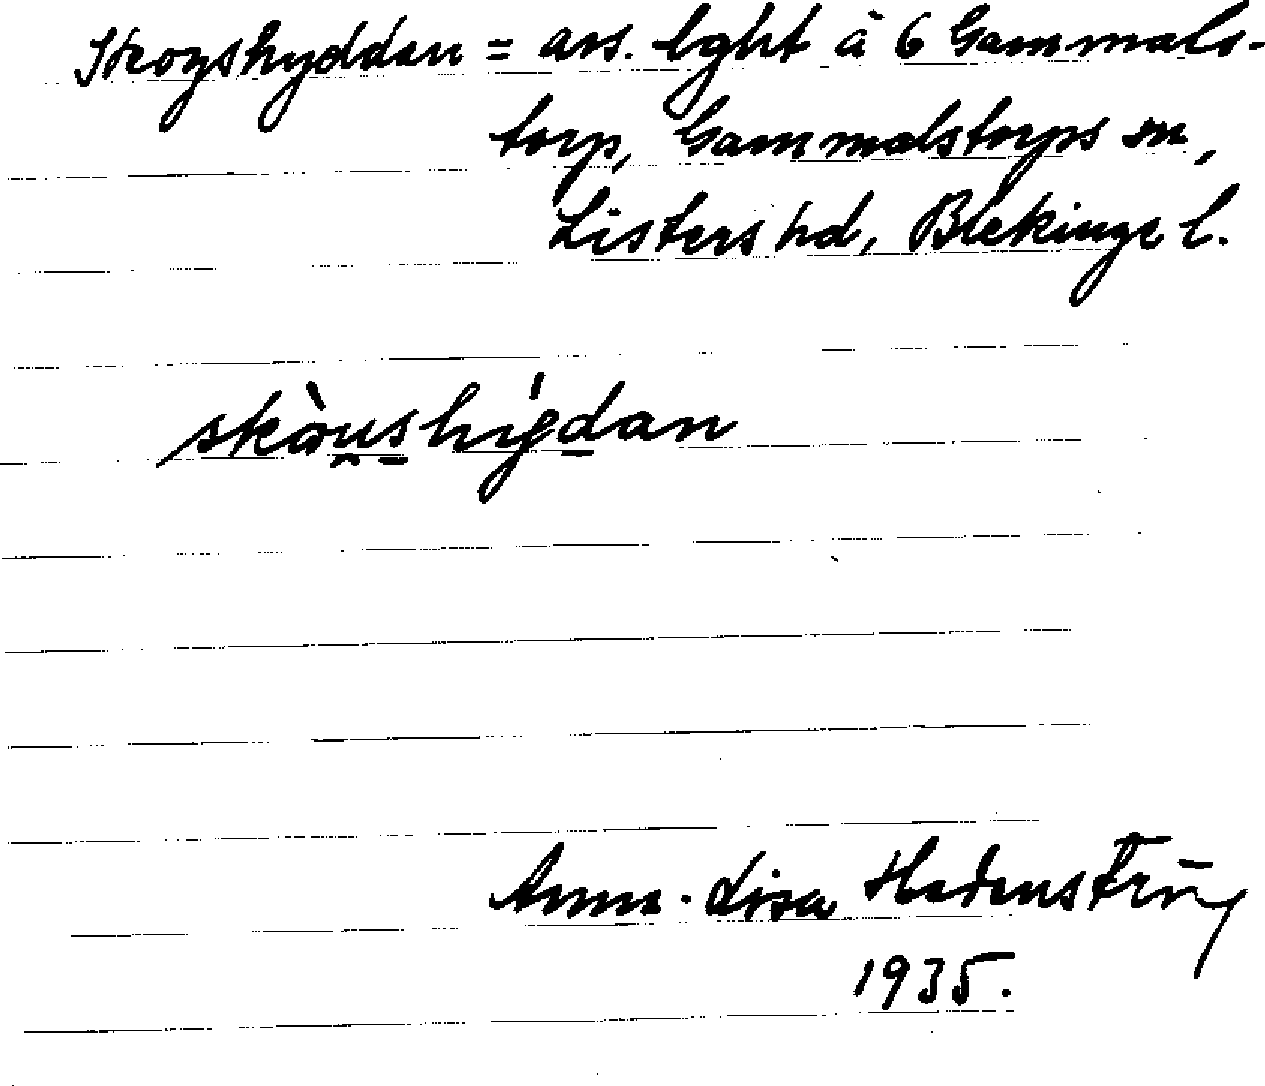 Skogshyddan = avs. lght å 6 Gammals-
torp, Gammalstorps sn,
Listers hd, Blekinge l.
skòu̯s̠hýd̠an
Anna-Lisa Hedenström
1935.